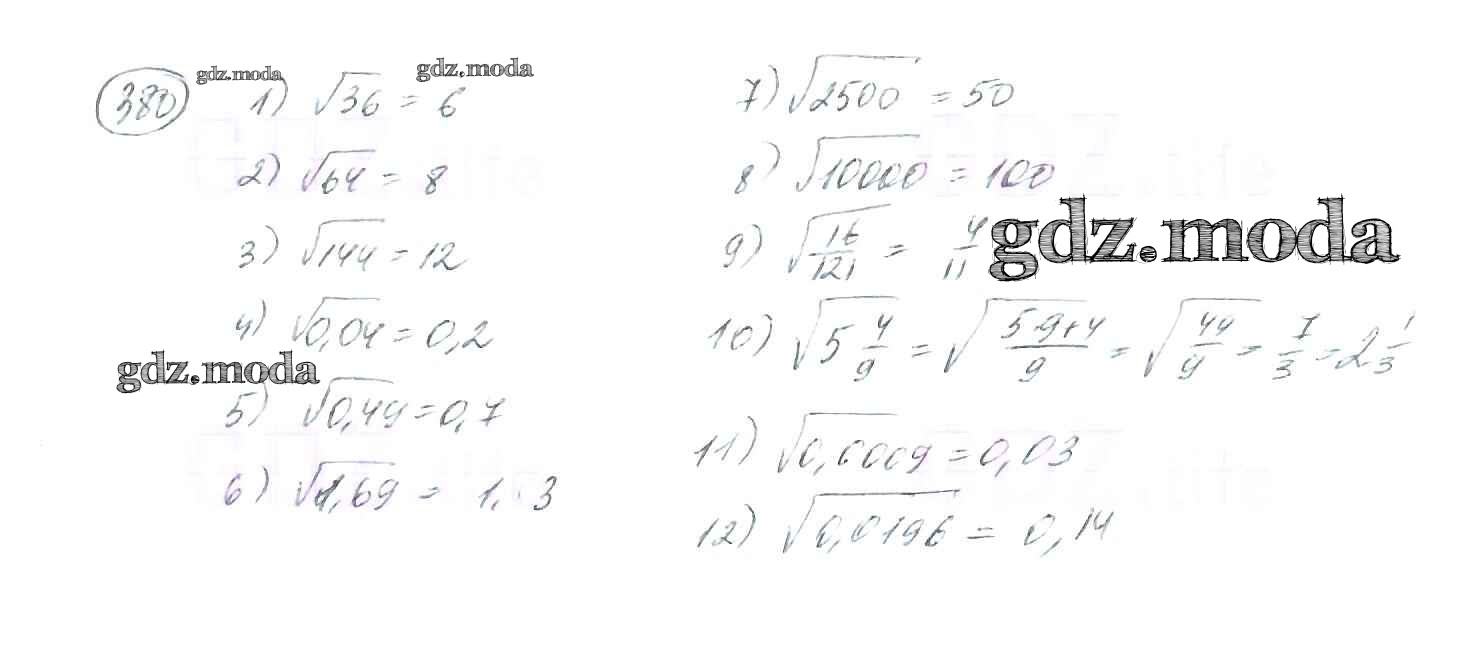 380
gdz.moda
gdz.moda
1) √36 = 6
2) √64 = 8
3) √144 = 12
4) √0,04 = 0,2
gdz.moda
5) √0,49 = 0,7
6) √1,69 = 1,3
7) √2500 = 50
8) √10000 = 100
9) √16/121 = 4/11
gdz.moda
10) √5 4/9 = √(5·9+4)/9 = √49/9 = 7/3 = 2 1/3
11) √0,0009 = 0,03
12) √0,0196 = 0,14